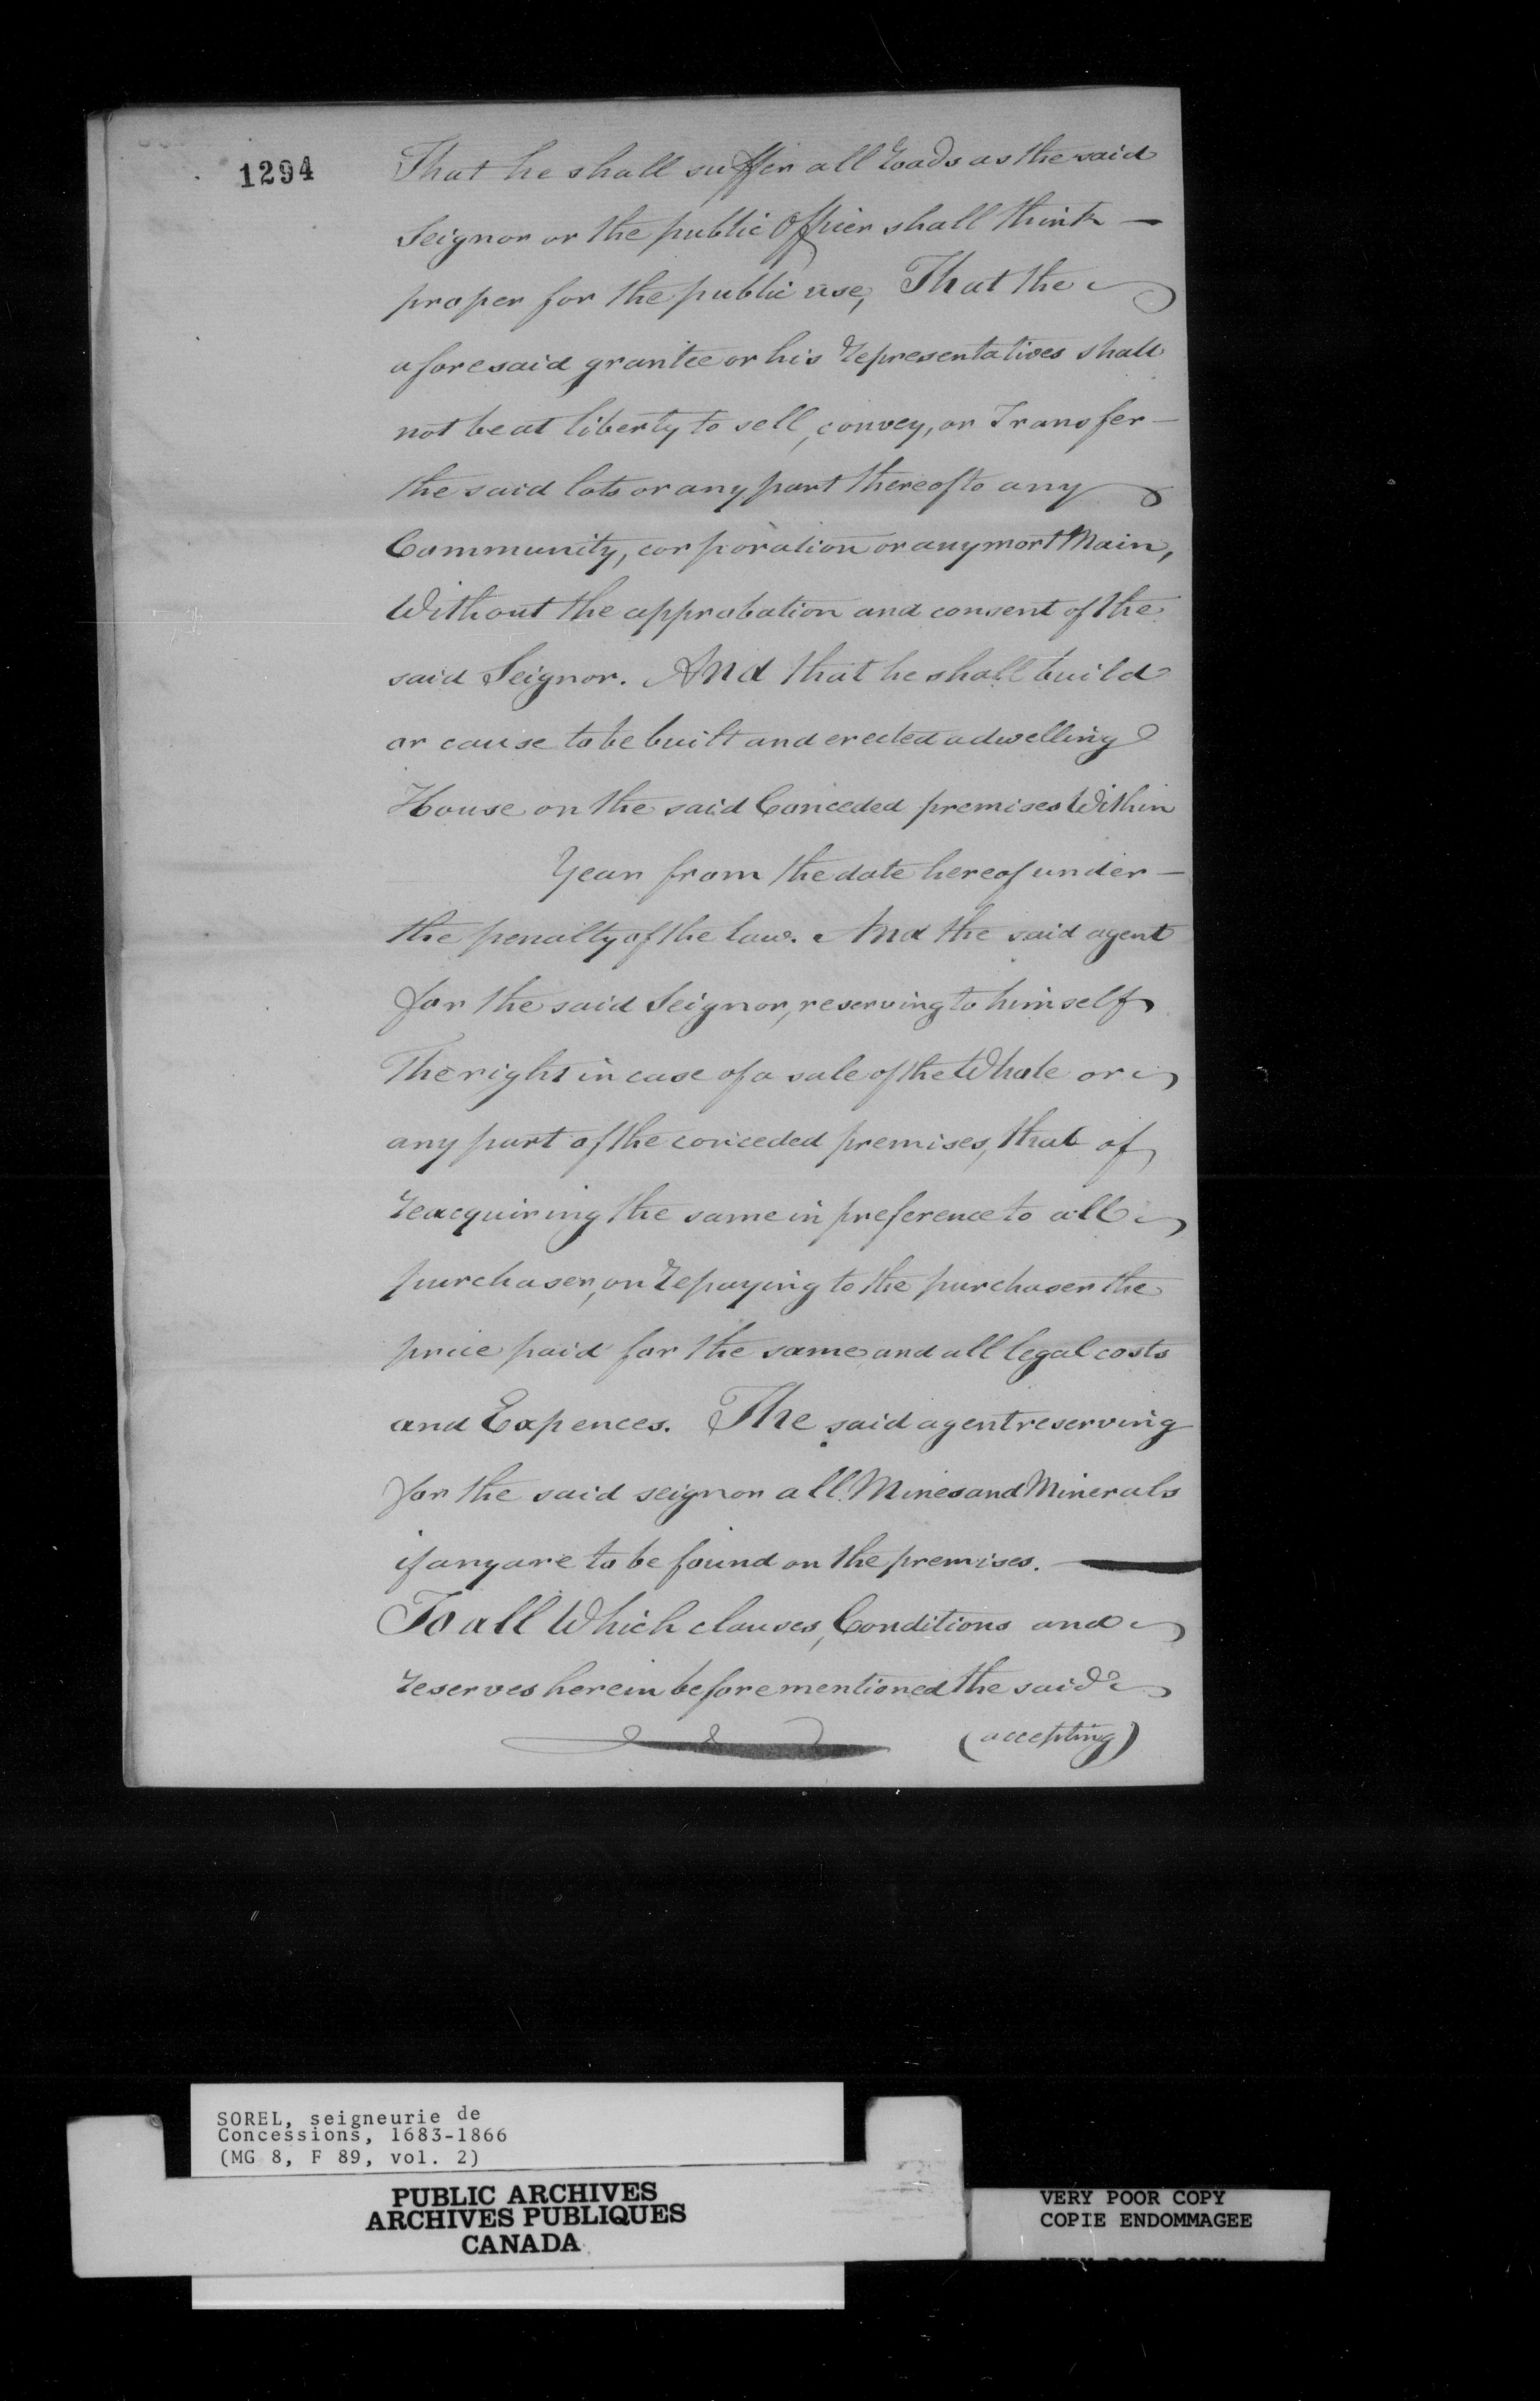 1294
That he shall suffer all roads as the said
Seignor or the public Officer shall think —
proper for the public use, That the
aforesaid grantee or his representatives shall
not be at liberty to sell, convey, or Transfer —
the said lots or any part thereof to any
Community, corporation or any mort Main,
Without the approbation and consent of the
said Seignor. And that he shall build
or cause to be built and erected a dwelling
House on the said Conceded premises Within
Year from the date hereof under —
the penalty of the law. And the said agent
for the said Seignor, reserving to himself
The right in case of a sale of the Whole or
any part of the conceded premises, that of
reacquiring the same in preference to all
purchaser, on repaying to the purchaser the
price paid for the same and all legal costs
and Expences. The said agent reserving
for the said seignor all Mines and Minerals
if any are to be found on the premises. —
To all Which clauses, Conditions and
reserves herein before mentioned the said
(accepting)
SOREL, seigneurie de
Concessions, 1683-1866
(MG 8, F 89, vol. 2)
PUBLIC ARCHIVES
ARCHIVES PUBLIQUES
CANADA
VERY POOR COPY
COPIE ENDOMMAGEE
VERY POOR COPY